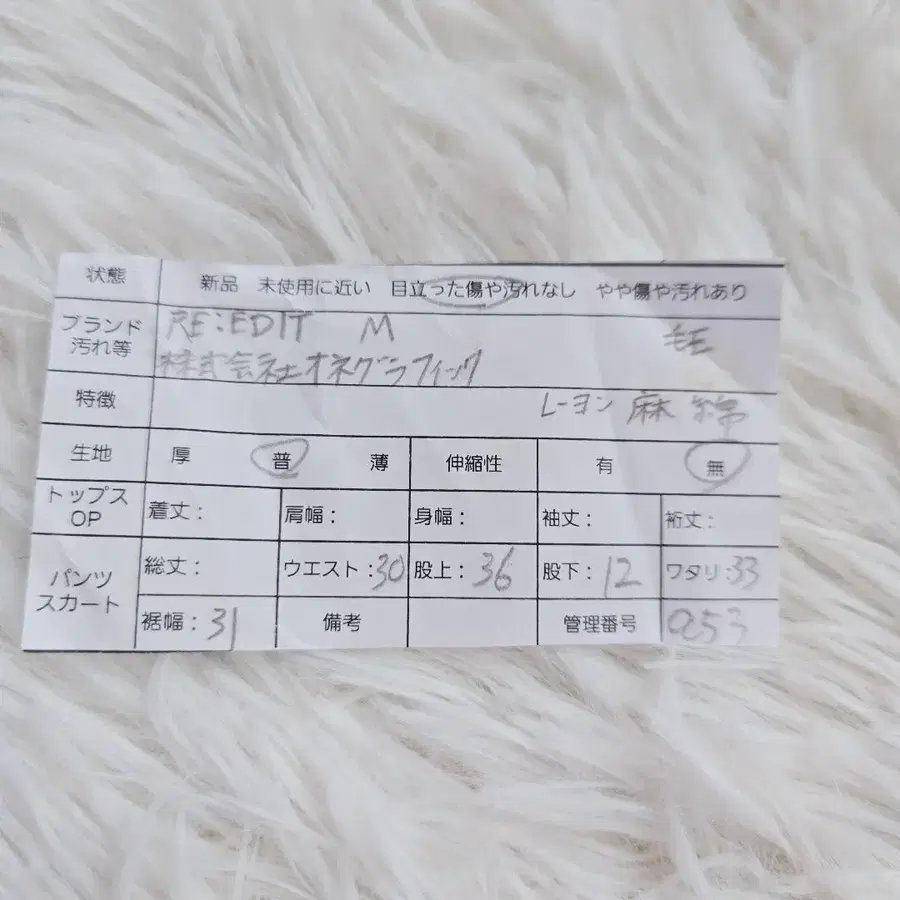 状態 新品 未使用に近い 目立った傷や汚れなし やや傷や汚れあり
ブランド RE:EDIT M 毛
汚れ等 株式会社オネグラフィック
特徴 レーヨン 麻 綿
生地 厚 普 薄 伸縮性 有 無
トップス
OP 着丈: 肩幅: 身幅: 袖丈: 裄丈:
総丈: ウエスト:30 股上:36 股下:12 ワタリ:33
パンツ
スカート
裾幅:31 備考 管理番号 0253